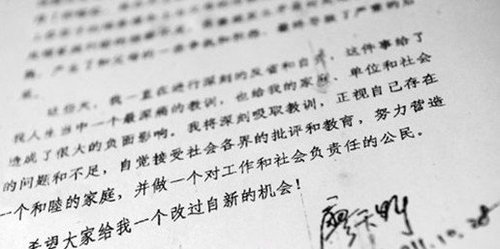 产生了和父母的一些争执和
最终导致了严重的后
这些天，我一直在进行深刻的反省和自
这件事给了
我人生当中一个最深痛的教训，也给我的家庭、单位和社会
造成了很大的负面影响。我将深刻吸取教训，正视自己存在
的问题和不足，自觉接受社会各界的批评和教育，努力营造
一个和睦的家庭，并做一个对工作和社会负责任的公民。
希望大家给我一个改过自新的机会！
廖天野
10.28